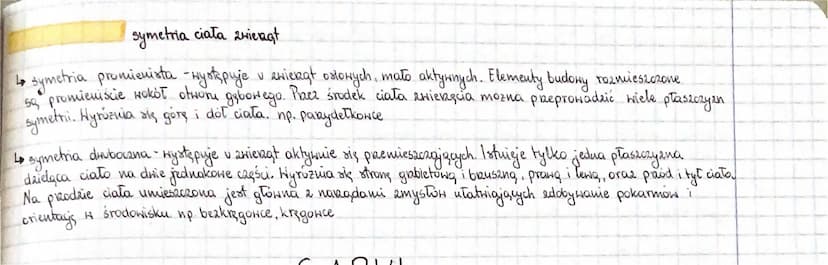 symetria ciała zwierząt
↳ symetria promienista - występuje u zwierząt osiowych, mało aktywnych. Elementy budowy rozmieszczone
są promieniście wokół otworu gębowego. Przez środek ciała zwierzęcia można przeprowadzić wiele płaszczyzn
symetrii. Wyróżnia się górę i dół ciała. np. parzydełkowce
↳ symetria dwuboczna - występuje u zwierząt aktywnie się przemieszczających. Istnieje tylko jedna płaszczyzna
dzieląca ciało na dwie jednakowe części. Wyróżnia się stronę grzbietową i brzuszną, prawą i lewą, oraz przód i tył ciała.
Na przodzie ciała umieszczona jest głowna z narządami zmysłów ułatwiających zdobywanie pokarmów i
orientację w środowisku np bezkręgowce, kręgowce